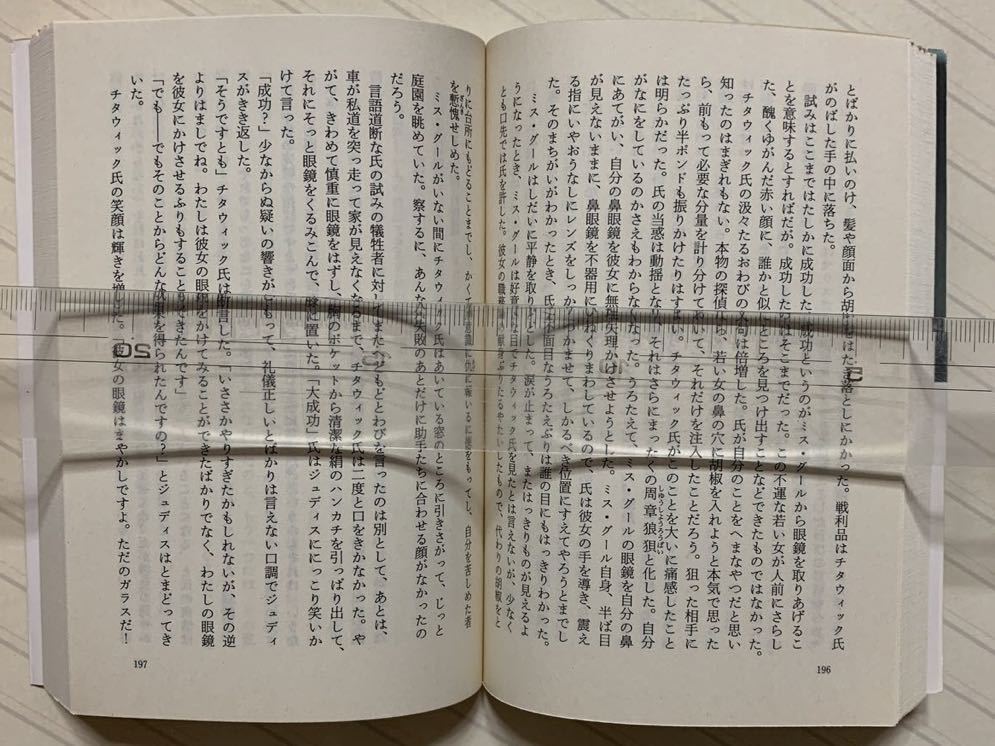 とばかりに払いのけ、髪や顔面から胡椒をはたき落としにかかった。戦利品はチタウィック氏
がのばした手の中に落ちた。
試みはここまではたしかに成功した――成功というのがミス・グールから眼鏡を取りあげるこ
とを意味するとすればだが。成功したのはそこまでだった。この不運な若い女が人前にさらし
た、醜くゆがんだ赤い顔に、誰かと似たところを見つけ出すことなどできたものではなかった。
チタウィック氏の汲々たるおわびの文句は倍増した。氏が自分のことをへまなやつだと思い
知ったのはまぎれもない。本物の探偵なら、若い女の鼻の穴に胡椒を入れようと本気で思った
ら、前もって必要な分量を計り分けておいて、それだけを注入したことだろう。狙った相手に
たっぷり半ポンドも振りかけたりはすまい。チタウィック氏がこのことを大いに痛感したこと
は明らかだった。氏の当惑は動揺となり、それはさらにまったくの周章狼狽と化した。自分
しゅうしょうろうばい
がなにをしているのかさえもわからなくなった。うろたえて、ミス・グールの眼鏡を自分の鼻
にあてがい、自分の鼻眼鏡を彼女に無理矢理かけさせようとした。ミス・グール自身、半ば目
が見えないままに、鼻眼鏡を不器用にいねくりまわしているので、氏は彼女の手を導き、震え
る指にいやおうなしにレンズをしっかりつかませて、しかるべき位置にすえてやろうとまでし
た。そのまちがいがわかったとき、氏の不面目なうろたえぶりは誰の目にもはっきりわかった。
ミス・グールはしだいに平静を取りもどした。涙が止まって、またはっきりものが見えるよ
うになったとき、ミス・グールは好意的な目でチタウィック氏を見たとは言えないが、少なく
とも口先では氏を許した。彼女の職務
代わりの胡椒をと
196
りに台所にもどることまでし、かくて
自分を苦しめた者
を慙愧せしめた。
ミス・グールがいない間にチタウィック氏はあいている窓のところに引きさがって、じっと
庭園を眺めていた。察するに、あんな大失敗のあとだけに助手たちに合わせる顔がなかったの
だろう。
言語道断な氏の試みの犠牲者に対してまたへどもどとわびを言ったのは別として、あとは、
車が私道を突っ走って家が見えなくなるまで、チタウィック氏は二度と口をきかなかった。や
がて、きわめて慎重に眼鏡をはずし、胸のポケットから清潔な絹のハンカチを引っぱり出して、
それにそっと眼鏡をくるみこんで、膝に置いた。「大成功」氏はジュディスににっこり笑いか
けて言った。
「成功？」少なからぬ疑いの響きがこもって、礼儀正しいとばかりは言えない口調でジュディ
スがきき返した。
「そうですとも」チタウィック氏は断言した。「いささかやりすぎたかもしれないが、その逆
よりはましでね。わたしは彼女の眼鏡をかけてみることができたばかりでなく、わたしの眼鏡
を彼女にかけさせるふりもすることができたんです」
「でも――でもそのことからどんな成果を得られたんですの？」とジュディスはとまどってき
いた。
チタウィック氏の笑顔は輝きを増した。「彼女の眼鏡はまやかしですよ。ただのガラスだ！
197